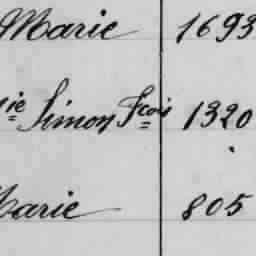 Marie 1693
ie Simon Fcois 1320
Marie 805